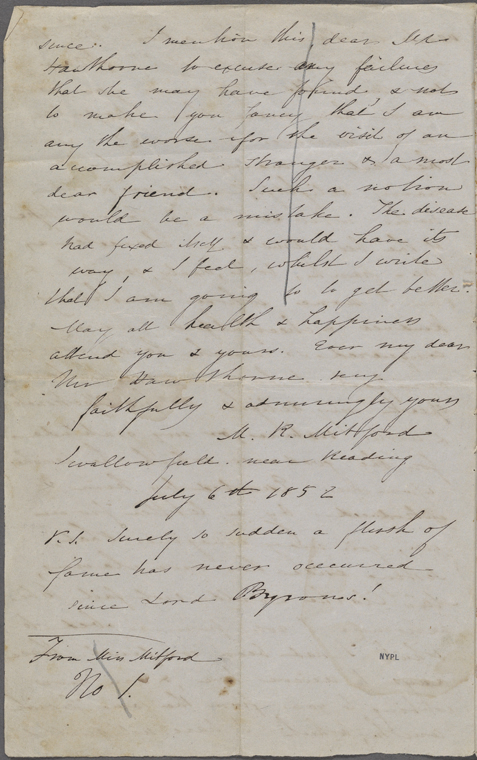 since. I mention this, dear Mr
Hawthorne to excuse any failures
that she may have found, & not
to make you fancy that I am
any the worse for the visit of an
accomplished stranger & a most
dear friend. Such a notion
would be a mistake. The disease
had fixed itself & would have its
way, & I feel, whilst I write
that I am going to get better.
May all health & happiness
attend you & yours. Ever my dear
Mr Hawthorne very
faithfully & admiringly yours
M. R. Mitford
Swallowfield. near Reading
July 6th 1852
P.S. Surely so sudden a flush of
fame has never occurred
since Lord Byrons!
From Miss Mitford
No 1.
NYPL